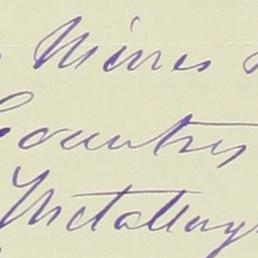 Mines
Country
Metallurg